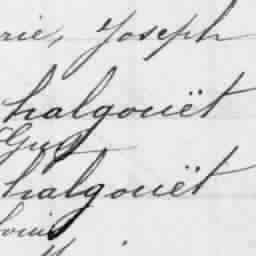 rie, Joseph
halgouët
Guy
halgouët
Louis